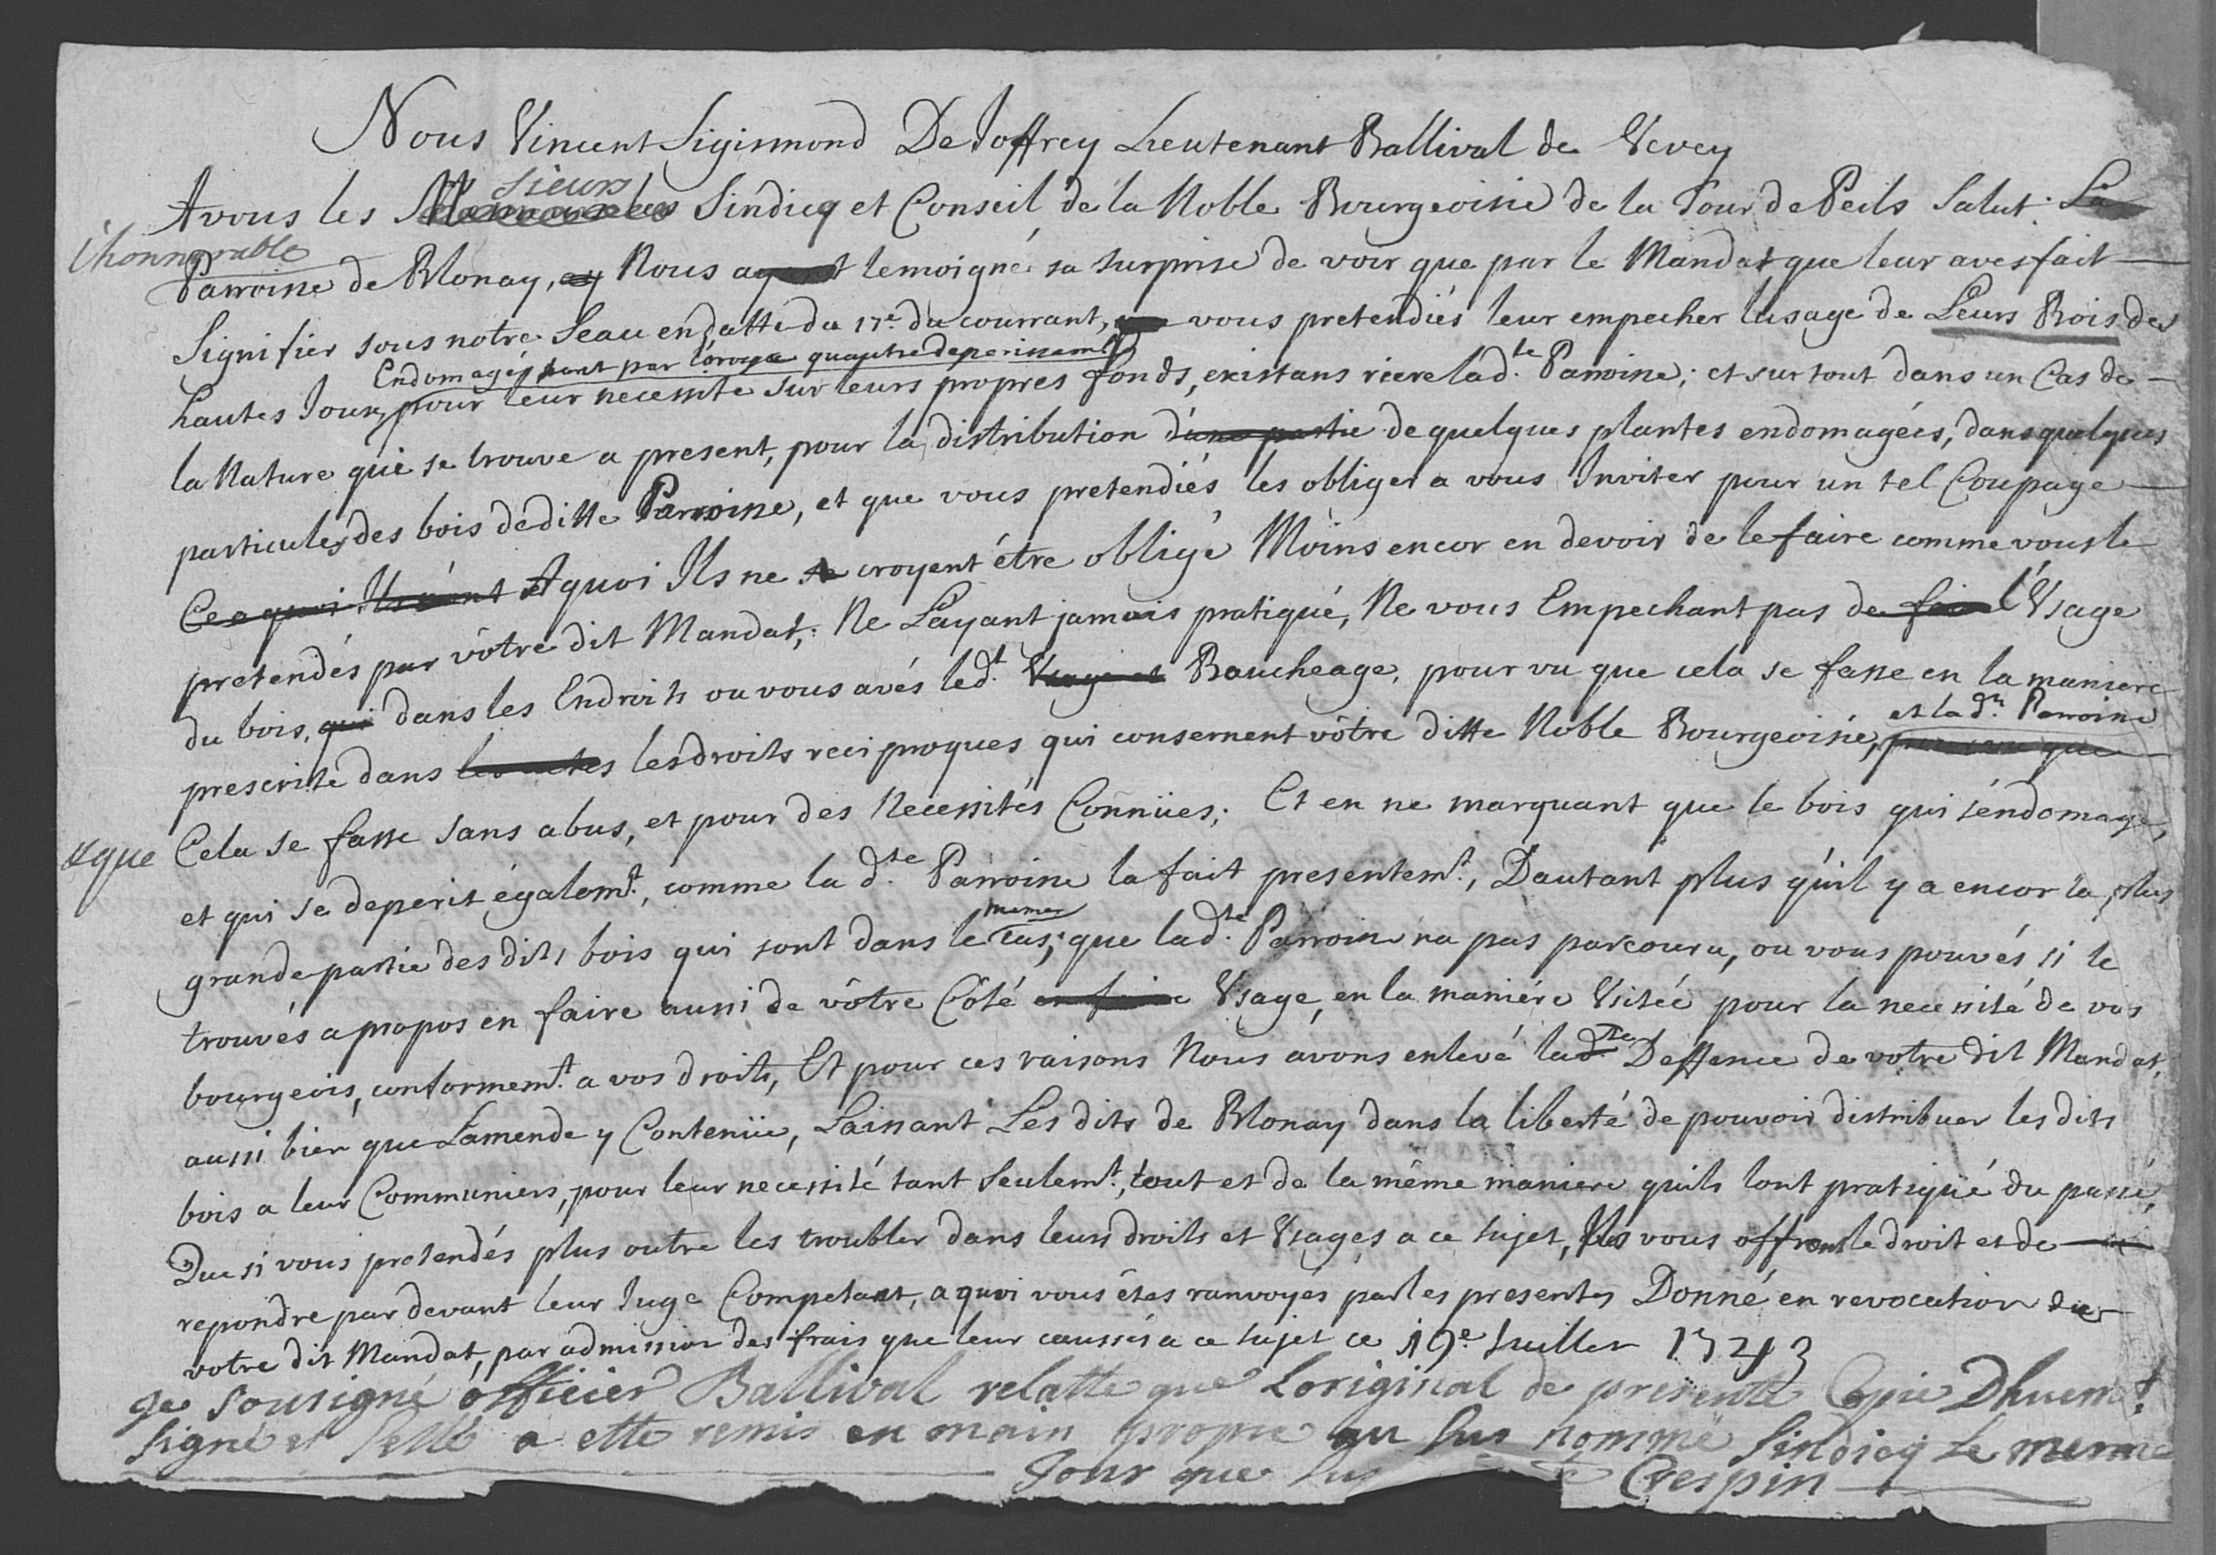 Nous Vincent Sigismond De Joffrey Lieutenant Ballival de Vevey
Sieurs
A vous les Sindicq et Conseil de la Noble Bourgeoisie de la Tour de Peils Salut. La
l'honnorable
Parroisse de Blonay, Nous a temoigné sa surprise de voir que par le Mandat que leur avés fait
Signifier sous notre Seau en datte du 17e. du courrant, vous pretendiés leur empecher lusage de Leurs Bois des
Endomagés tant par deperissemt
hautes Joux, pour leur necessité sur leurs propres fonds, existans riere lad.te Parroisse; et sur tout dans un Cas de
la Nature qui se trouve a present, pour la distribution d'une partie de quelques plantes endomagées, dans quelques
particules des bois de ditte Parroisse, et que vous pretendiés les obliger a vous Inviter pour un tel Coupage
Ce a quoi Ils A quoi Ils ne se croyent étre obligé Moins encor en devoir de le faire comme vous le
pretendés par vôtre dit Mandat; Ne Layant jamais pratiqué, Ne vous Empechant pas de faire l'Usage
du bois, qui dans les Endroits ou vous avés led.t Usage et Baucheage, pour vu que cela se fasse en la maniere
et la d.te Parroisse
prescrite dans les actes les droits reciproques qui consernent vôtre ditte Noble Bourgeoisie, pourvu que
& que Cela se fasse sans abus, et pour des Necessités Connües; Et en ne marquant que le bois qui séndomage,
et qui se deperit égalem.t, comme la d.te Parroisse la fait presentem.t, Dautant plus qu'il y a encor la plus
memes
grande partie des dits bois qui sont dans le cas, que lad.te Parroisse na pas parcouru, ou vous pouvés si le
trouvés a propos en faire aussi de vôtre Côté en faire Usage, en la maniére Usitée pour la necessité de vos
bourgeois, conformem.t a vos droits, Et pour ces raisons Nous avons enlevé lad.te Deffence de votre dit Mandat,
aussi bien que Lamende y Contenüe, Laissant Les dits de Blonay dans la liberté de pouvoir distribuer les dits
bois a leur Communiers, pour leur necessité tant seulem.t, tout et de la même maniere quils lont pratiqué du passé,
Que si vous pretendés plus outre les troubler dans leurs droits et Usages a ce sujet, Ils vous offrent le droit et de
repondre par devant leur Juge Competant, a quoi vous êtes ranvoyés par les presentes Donné en revocation de
votre dit Mandat, par admission des frais que leur caussés a ce sujet ce 19e. Juillet 1743
Je sousigné officier Ballival relatte que Loriginal de presente Copie Dhuem.t
signé et Sellé a etté remis en main propre au Sus nommé Sindicq Le meme
Jour que Sus Crespin